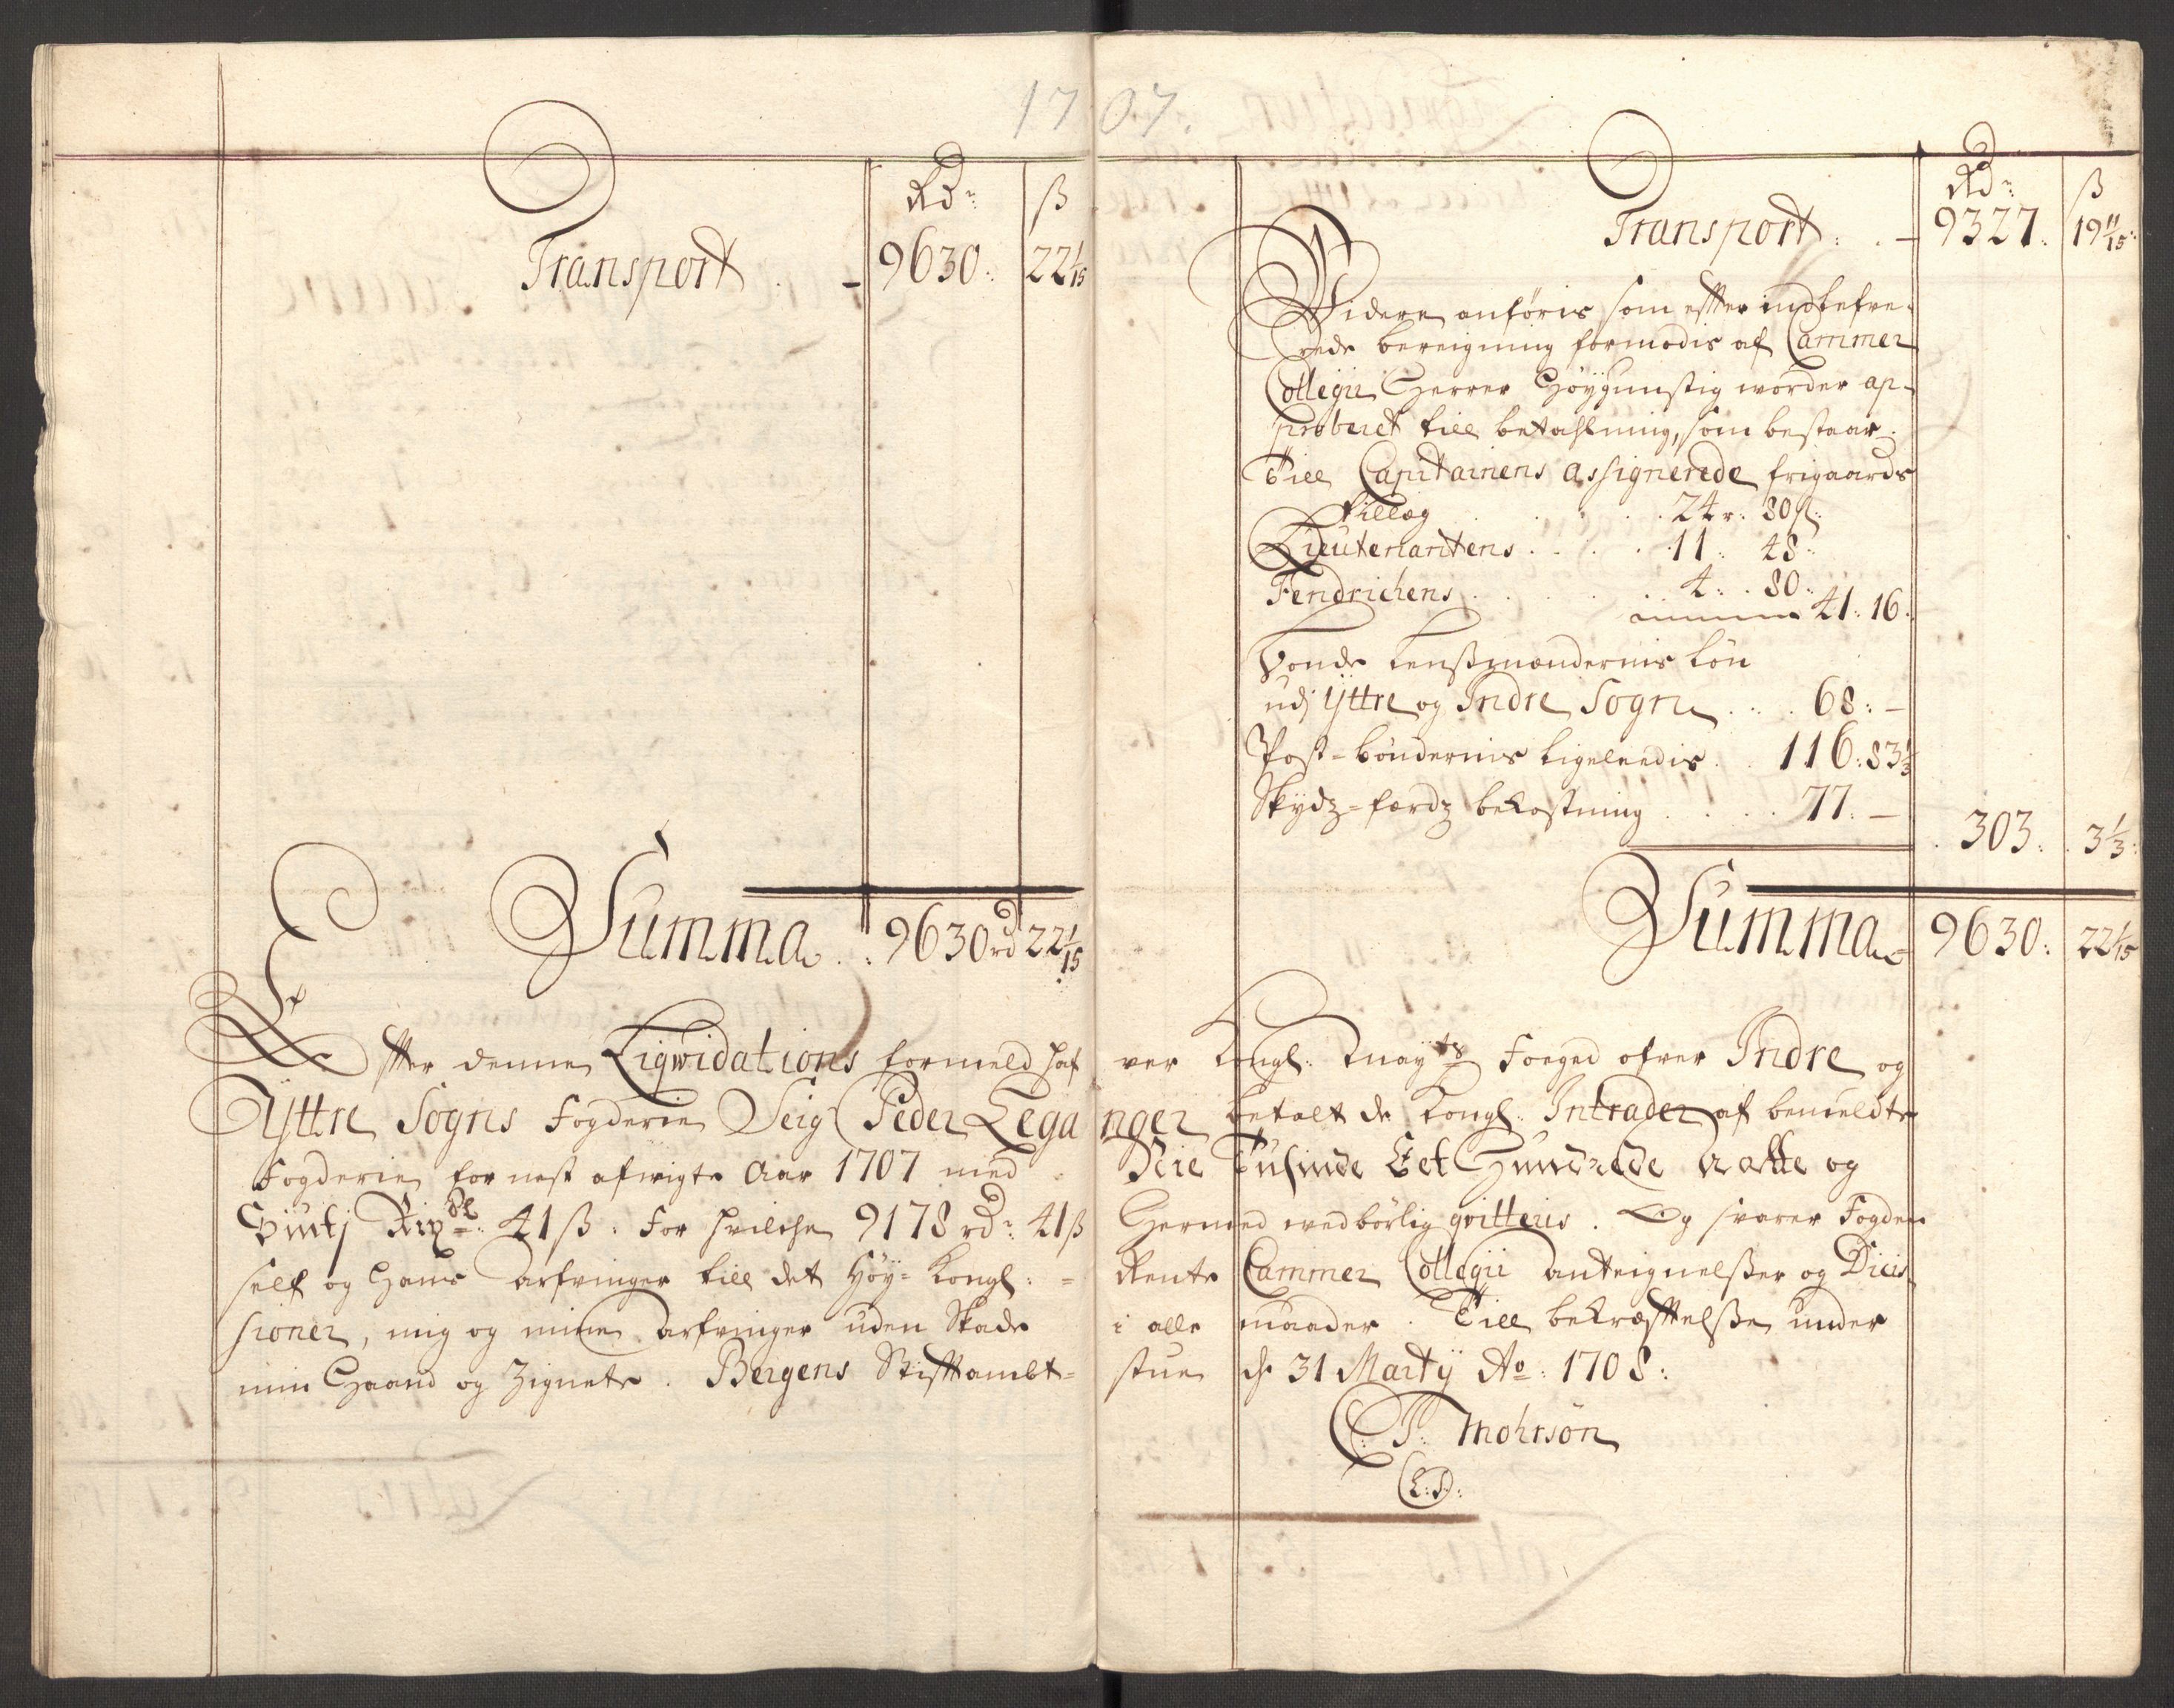 1707.
Rdr ß
Transport . – 9630: 22 1/15
Summa . : 9630 rd 22 1/15
Rdr: ß
Transport : . – 9327: 19 11/15:
Videre anföris som effter indlefve-
rede bereigning formodis af Cammer
Collegii Herrer Höygunstig worder ap-
proberet till betahlning, som bestaar.
Till Capitainens assignerede frigaards
tillæg . . . . 24 r: 80 ß:
Lieutenantens . . . . 11: 48:
Fendrichens . . . . 4: 80:
41: 16:
Bonde Lenßmændernis Lön
udj Yttre og Indre Sogn . . . 68: –
Post-böndernis ligeleedis . . 116: 83 1/3
Skydz-færdz bekostning . . . . 77: –
303: 3 1/3:
Summa 9630: 22 1/15
Effter denne Liqwidations formeld haf ver Kongl: Mayts Foeged ofver Indre og
Yttre Sogns Fogderie Seig Peder Lega nger betalt de Kongl: Intrader af bemeldte
Fogderie for nest afvigte Aar 1707 med Nie Tusinde Eet Hundrede otte og
Siutj Rixdl: 41 ß: For hvilche 9178 rd: 41 ß Hermed vedbörlig qvitteris. Og svarer Fogden
self og Hans Arfvinger till det Höy-Kongl: = Rente Cammer Collegii Anteignelßer og Decis
sioner, mig og mine Arfvinger uden Skade i alle maader. Till bekræfftelße under
min Haand og Zignete. Bergens Stifftambt= stue d: 31 Martij Ao: 1708:
C: P: Mohrsön
(L:S):